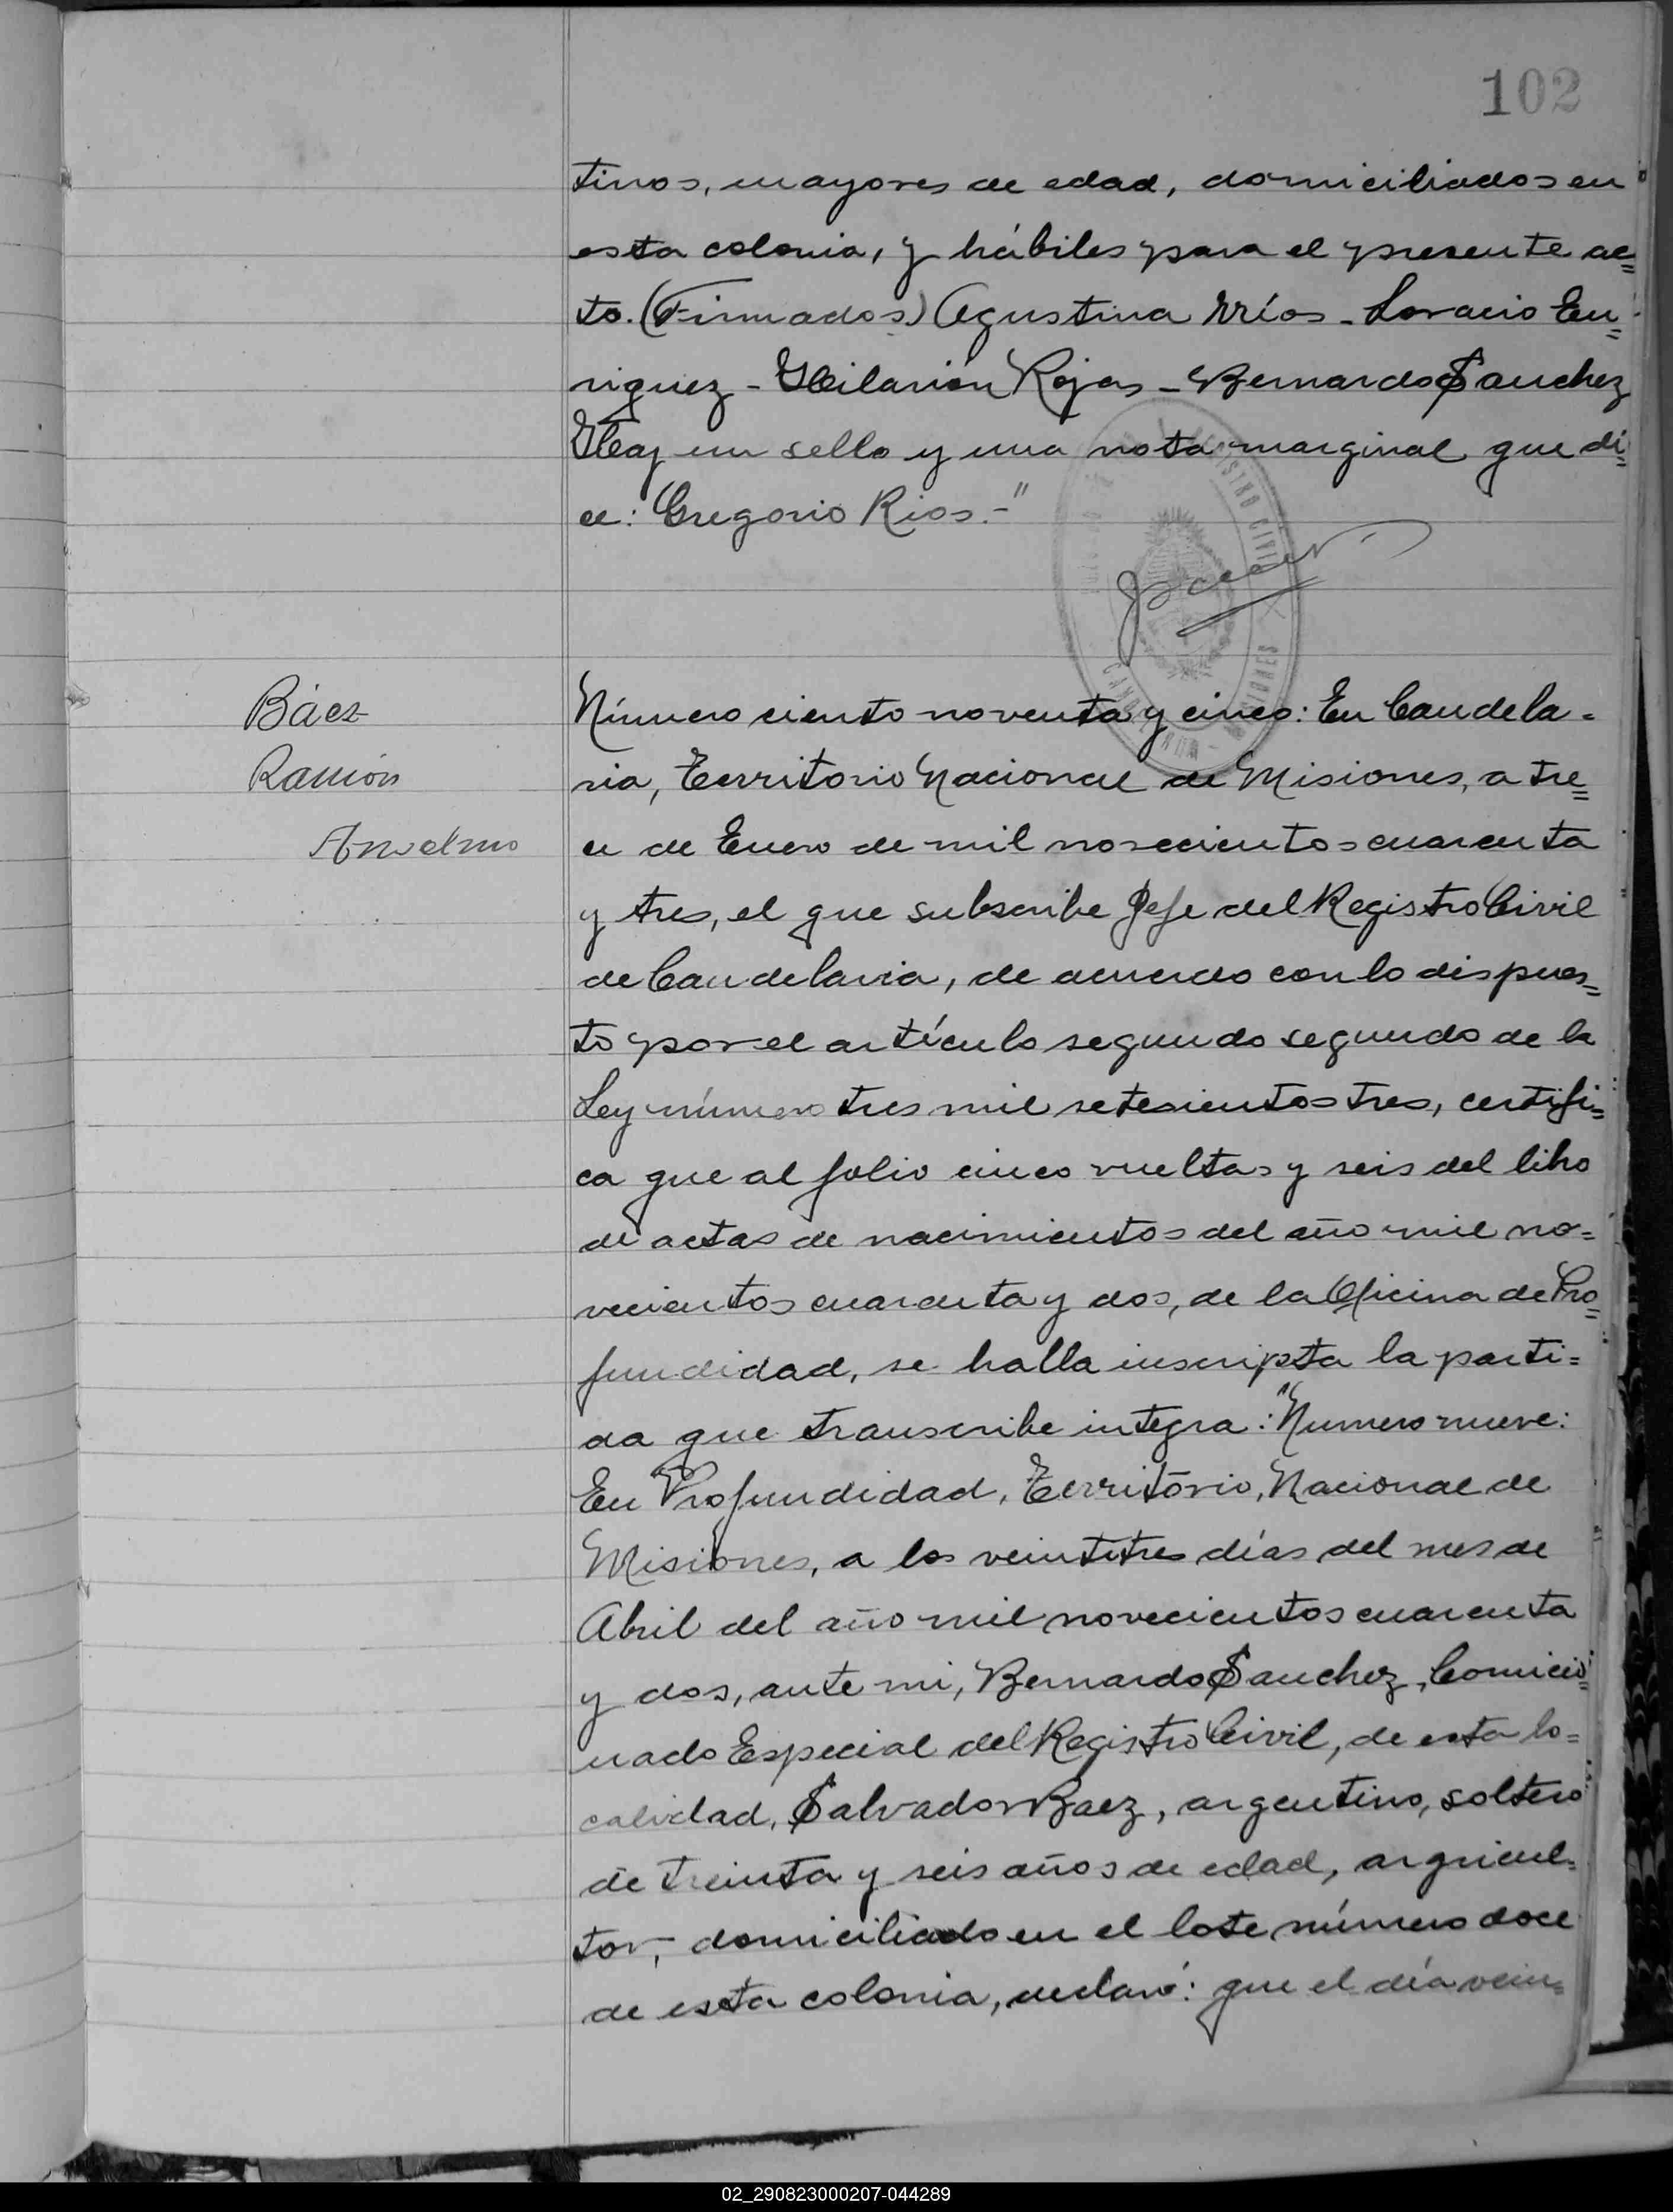 102
tinos, mayores de edad, domiciliados en
esta colonia, y hábiles para el presente ac=
to. (Firmados) Agustina Rríos - Horacio En=
riquez - Hilarión Rojas - Bernardo Sanchez
Hay un sello y una nota marginal que di=
ce: Gregorio Rios.-"
REGISTRO CIVIL
CANDELARIA - MISIONES
Báez
Ramón
Anselmo
Número ciento noventa y cinco: En Candela=
ria, Territorio Nacional de Misiones, a tre=
ce de Enero de mil novecientos cuarenta
y tres, el que subscribe Jefe del Registro Civil
de Candelaria, de acuerdo con lo dispues=
to por el artículo segundo segundo de la
Ley número tres mil setecientos tres, certifi=
ca que al folio cinco vueltas y seis del libro
de actas de nacimientos del año mil no=
vecientos cuarenta y dos, de la Oficina de Pro=
fundidad, se halla inscripta la parti=
da que transcribe integra: "Numero nueve:
En Profundidad, Territorio, Nacional de
Misiones, a los veintitres días del mes de
Abril del año mil novecientos cuarenta
y dos, ante mi, Bernardo Sanchez, Comicio=
nado Especial del Registro Civil, de esta lo=
calidad, Salvador Baez, argentino, soltero
de treinta y seis años de edad, argricul=
tor, domiciliado en el lote número doce
de esta colonia, declaró: que el día vein=
02_290823000207-044289